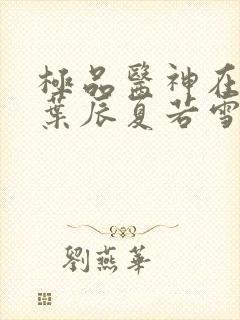 極品醫神在
葉辰夏若雪
劉燕華